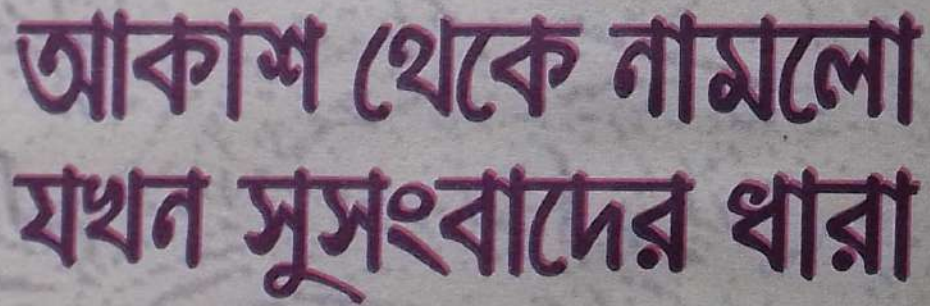 আকাশ থেকে নামলো
যখন সুসংবাদের ধারা